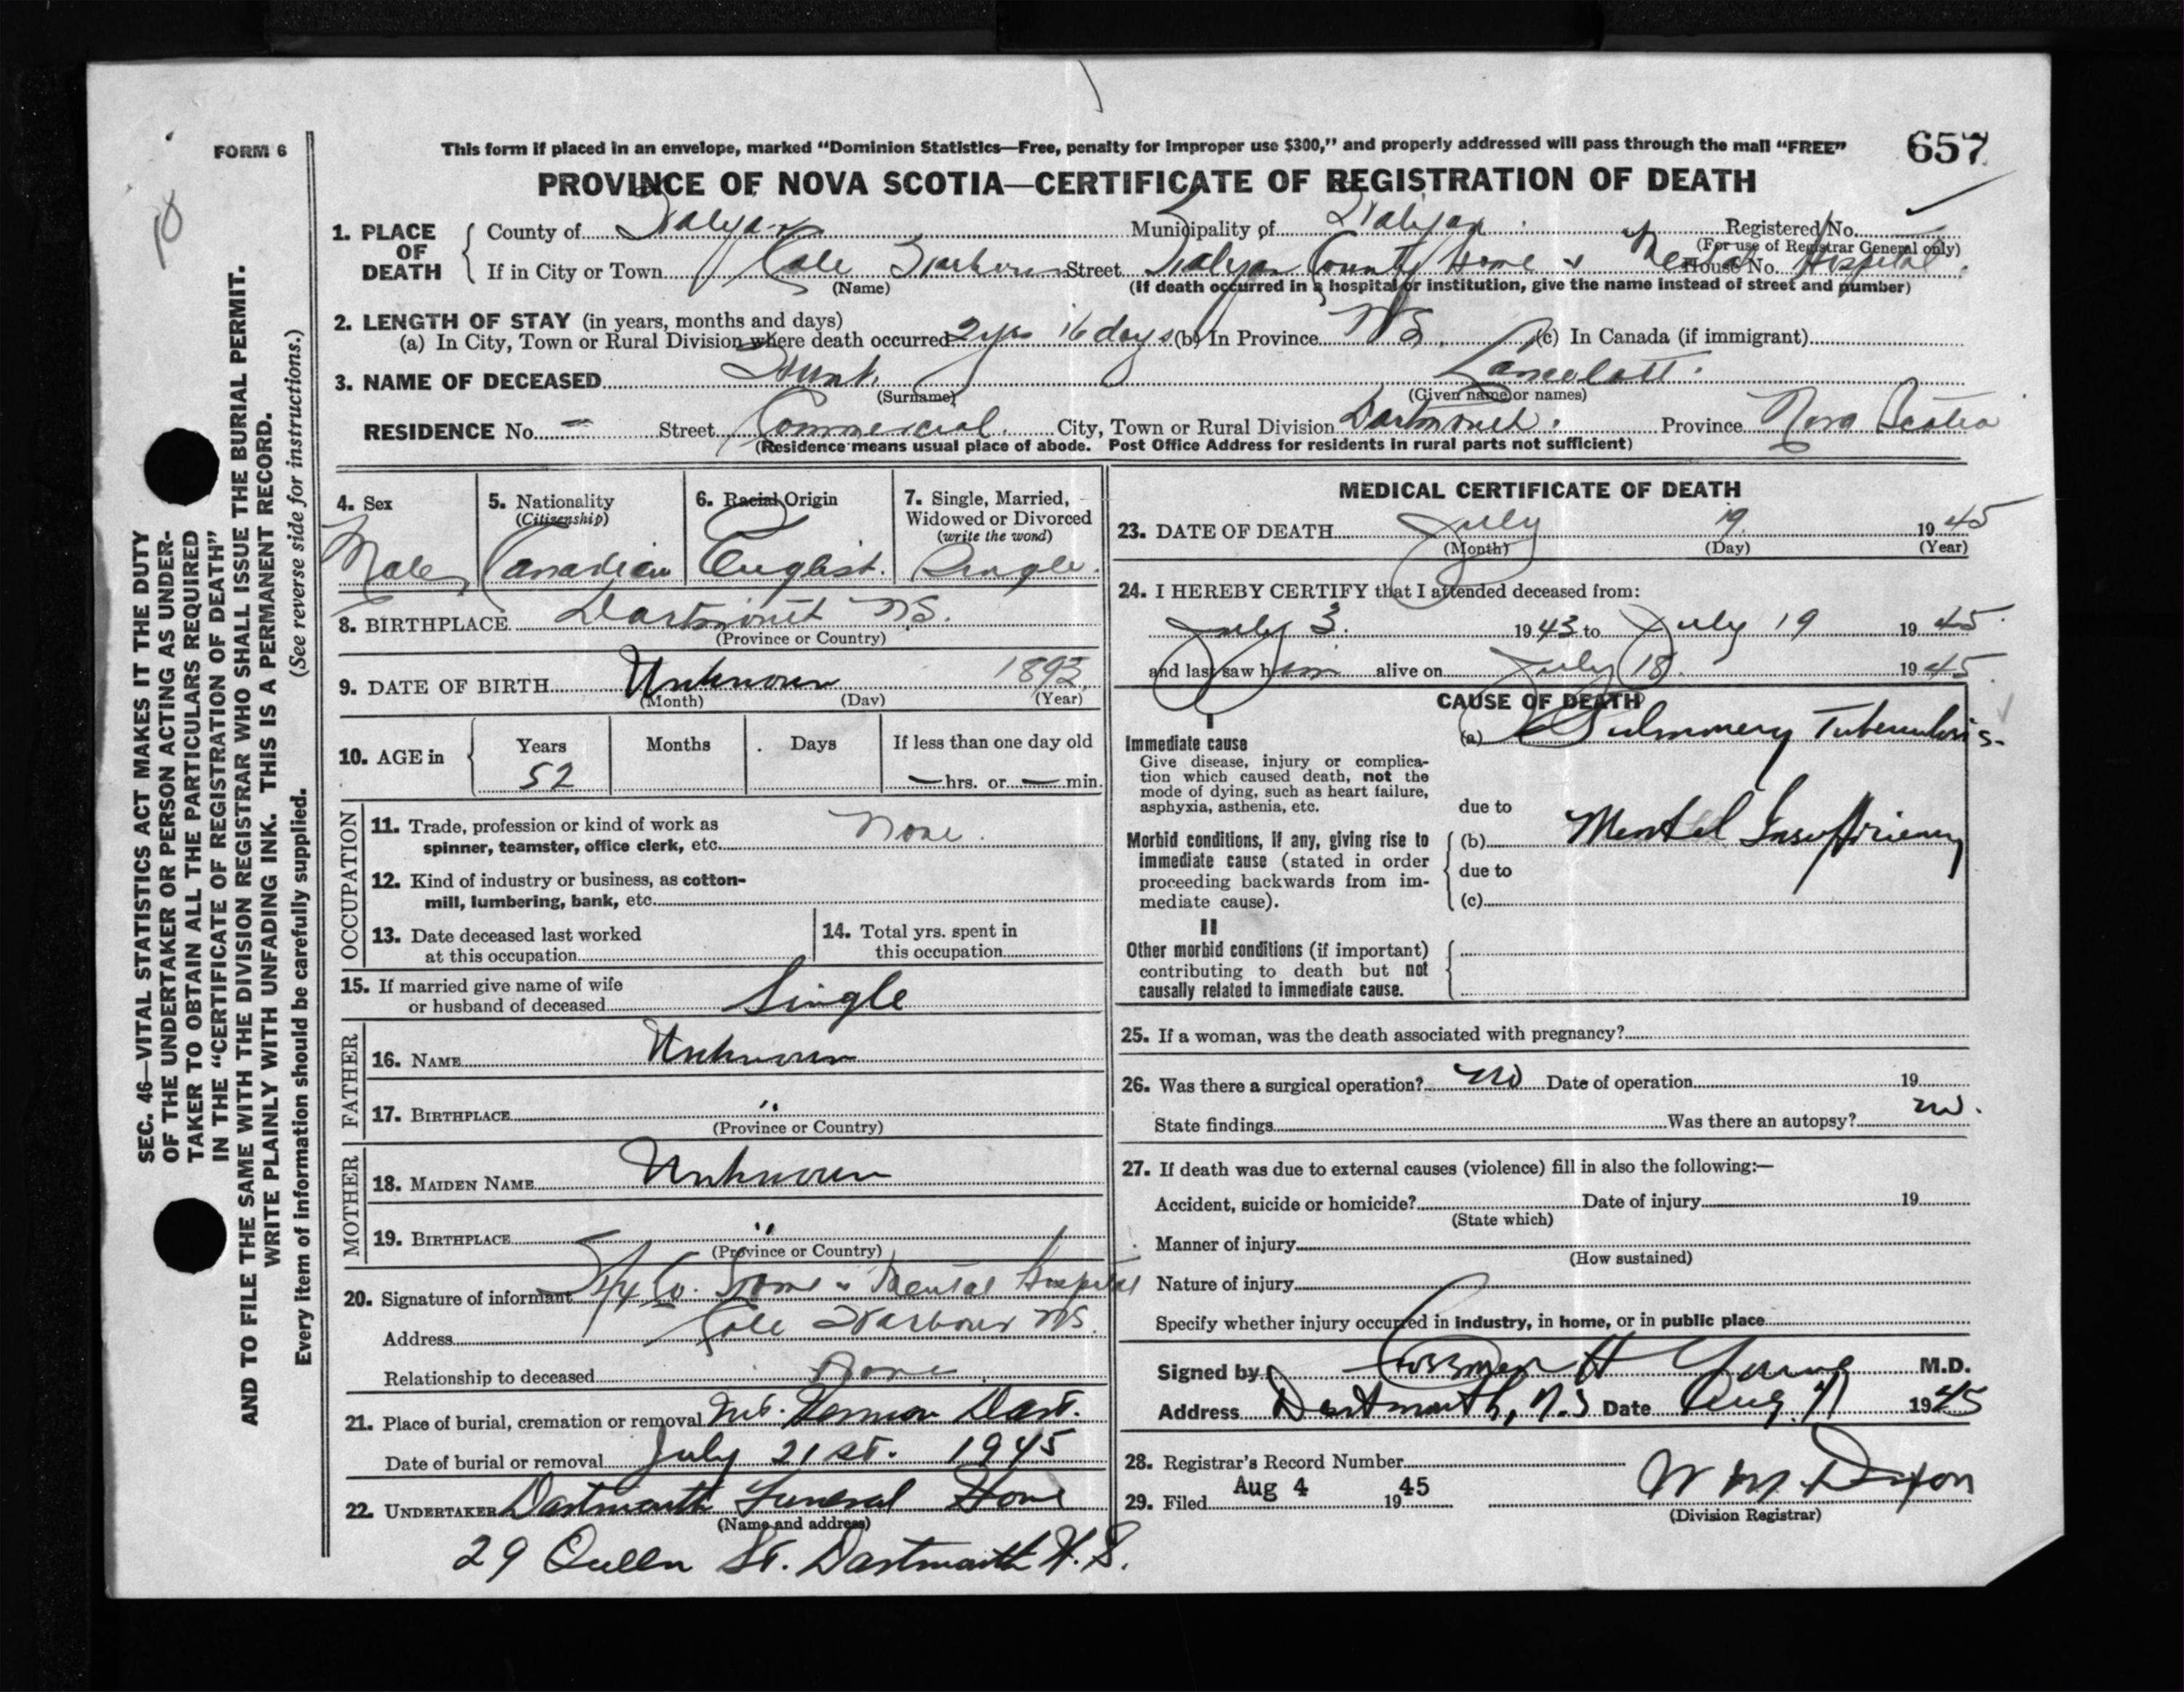 FORM 6
This form if placed in an envelope, marked “Dominion Statistics—Free, penalty for improper use $300,” and properly addressed will pass through the mail “FREE”
657
PROVINCE OF NOVA SCOTIA—CERTIFICATE OF REGISTRATION OF DEATH
1. PLACE OF DEATH
County of Halifax Municipality of Halifax Registered No.
(For use of Registrar General only)
If in City or Town Cole Harbour Street Halifax County Home & Mental Hospital House No.
(Name) (If death occurred in a hospital or institution, give the name instead of street and number)
2. LENGTH OF STAY (in years, months and days)
(a) In City, Town or Rural Division where death occurred 2 yrs 16 days (b) In Province N.S. (c) In Canada (if immigrant)
3. NAME OF DECEASED Hunt. Lancelott.
(Surname) (Given name or names)
RESIDENCE No. — Street Commercial City, Town or Rural Division Dartmouth. Province Nova Scotia
(Residence means usual place of abode. Post Office Address for residents in rural parts not sufficient)
4. Sex
Male
5. Nationality
(Citizenship)
Canadian
6. Racial Origin
English.
7. Single, Married,
Widowed or Divorced
(write the word)
Single.
8. BIRTHPLACE Dartmouth N.S.
(Province or Country)
9. DATE OF BIRTH Unknown 1893
(Month) (Day) (Year)
10. AGE in
Years Months Days If less than one day old
52 — hrs. or — min.
OCCUPATION
11. Trade, profession or kind of work as
spinner, teamster, office clerk, etc. None.
12. Kind of industry or business, as cotton-
mill, lumbering, bank, etc.
13. Date deceased last worked
at this occupation
14. Total yrs. spent in
this occupation
15. If married give name of wife
or husband of deceased Single
FATHER
16. NAME Unknown
17. BIRTHPLACE "
(Province or Country)
MOTHER
18. MAIDEN NAME Unknown
19. BIRTHPLACE "
(Province or Country)
20. Signature of informant Hfx Co. Home & Mental Hospital
Address Cole Harbour N.S.
Relationship to deceased None
21. Place of burial, cremation or removal Mt. Hermon Dart.
Date of burial or removal July 21st. 1945
22. UNDERTAKER Dartmouth Funeral Home
(Name and address)
29 Queen St. Dartmouth N.S.
MEDICAL CERTIFICATE OF DEATH
23. DATE OF DEATH July 19. 1945
(Month) (Day) (Year)
24. I HEREBY CERTIFY that I attended deceased from:
July 3. 1943 to July 19 1945.
and last saw him alive on July 18. 1945.
CAUSE OF DEATH
I
Immediate cause
Give disease, injury or complica-
tion which caused death, not the
mode of dying, such as heart failure,
asphyxia, asthenia, etc.
(a) Pulmonery Tuberculosis-
due to
Morbid conditions, if any, giving rise to
immediate cause (stated in order
proceeding backwards from im-
mediate cause).
(b) Mental Insufficiency
due to
(c)
II
Other morbid conditions (if important)
contributing to death but not
causally related to immediate cause.
25. If a woman, was the death associated with pregnancy?
26. Was there a surgical operation? no Date of operation 19
State findings Was there an autopsy? no.
27. If death was due to external causes (violence) fill in also the following:—
Accident, suicide or homicide? Date of injury 19
(State which)
Manner of injury
(How sustained)
Nature of injury
Specify whether injury occurred in industry, in home, or in public place
Signed by H Young M.D.
Address Dartmouth, N.S Date Aug. 1945
28. Registrar's Record Number
29. Filed Aug 4 1945 W M Dixon
(Division Registrar)
SEC. 46—VITAL STATISTICS ACT MAKES IT THE DUTY
OF THE UNDERTAKER OR PERSON ACTING AS UNDER-
TAKER TO OBTAIN ALL THE PARTICULARS REQUIRED
IN THE “CERTIFICATE OF REGISTRATION OF DEATH”
AND TO FILE THE SAME WITH THE DIVISION REGISTRAR WHO SHALL ISSUE THE BURIAL PERMIT.
WRITE PLAINLY WITH UNFADING INK. THIS IS A PERMANENT RECORD.
Every item of information should be carefully supplied. (See reverse side for instructions.)